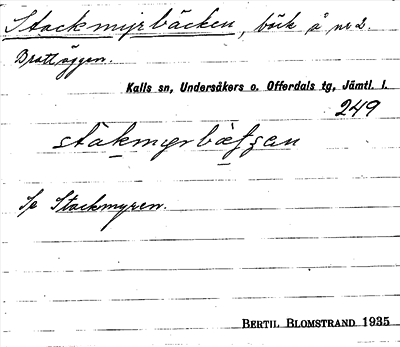 Stockmyrbäcken, bäck å nr 2.
Brattöggen.
Kalls sn, Undersåkers o. Offerdals tg, Jämtl. l.
249
Sp Stockmyren.
BERTIL BLOMSTRAND 1935